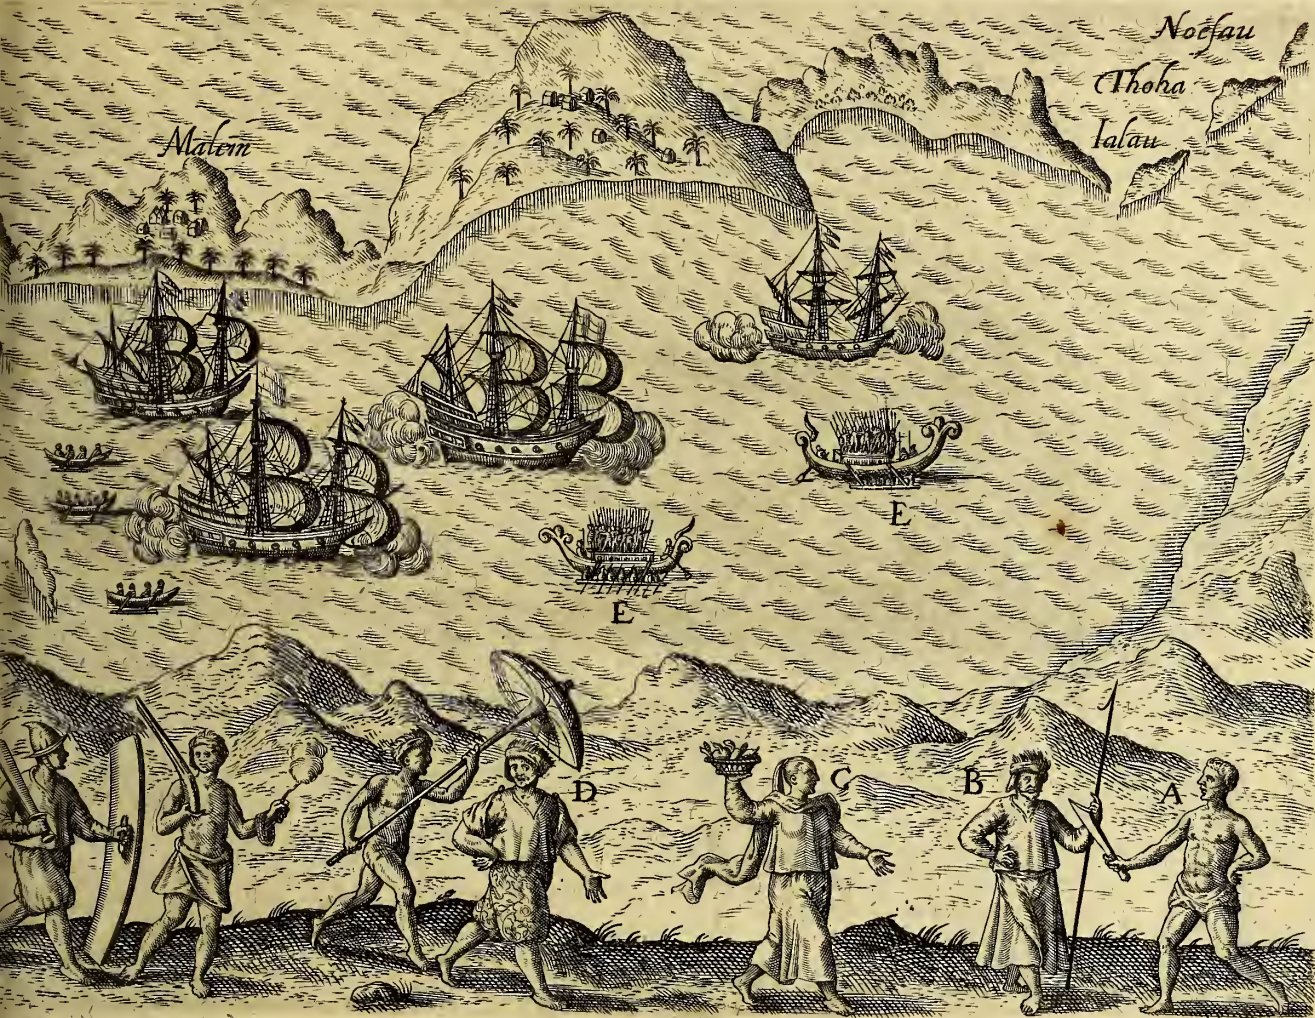 Noesau
Thoha
Ialau
Malem
E
E
D
C
B
A